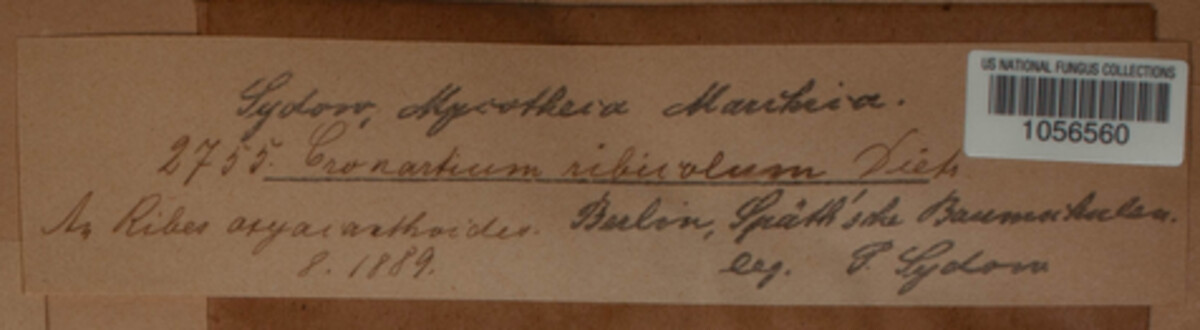 US NATIONAL FUNGUS COLLECTIONS
1056560
Sydow, Mycotheca Marchica.
2755. Cronartium ribicolum Diet
An Ribes oxyacanthoides. Berlin, Späth'sche Baumschulen.
8. 1889. leg. P. Sydow